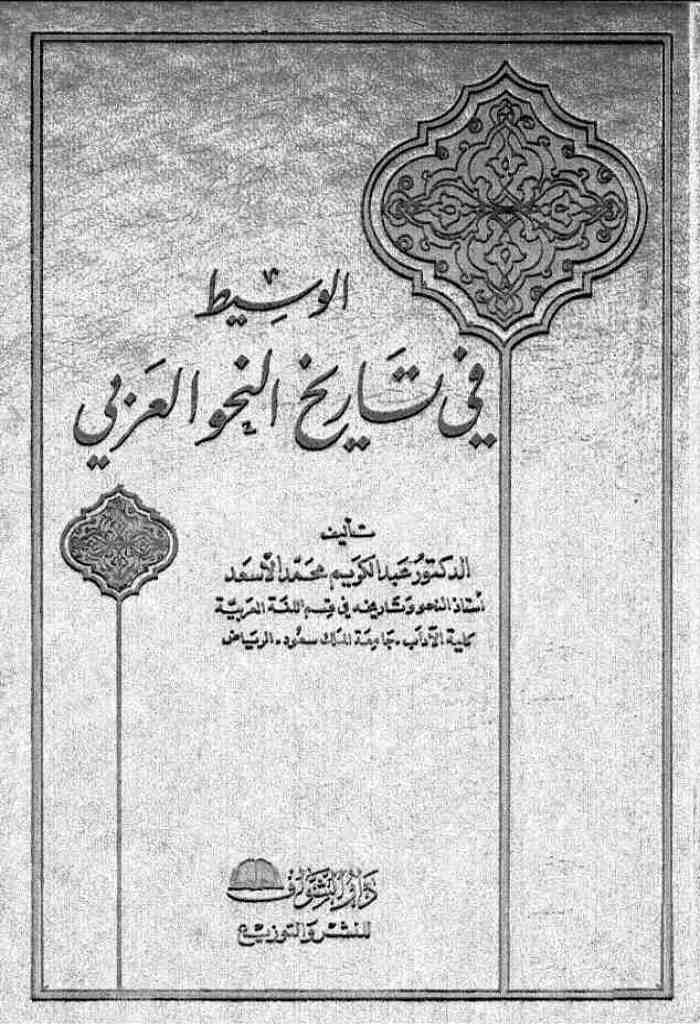 الوسيط
في تاريخ النحو العربي
تأليف
الدكتور عبد الكريم محمد الأسعد
أستاذ النحو وتاريخه في قسم اللغة العربية
كلية الآداب - جامعة الملك سعود - الرياض
دار الشواف
للنشر والتوزيع